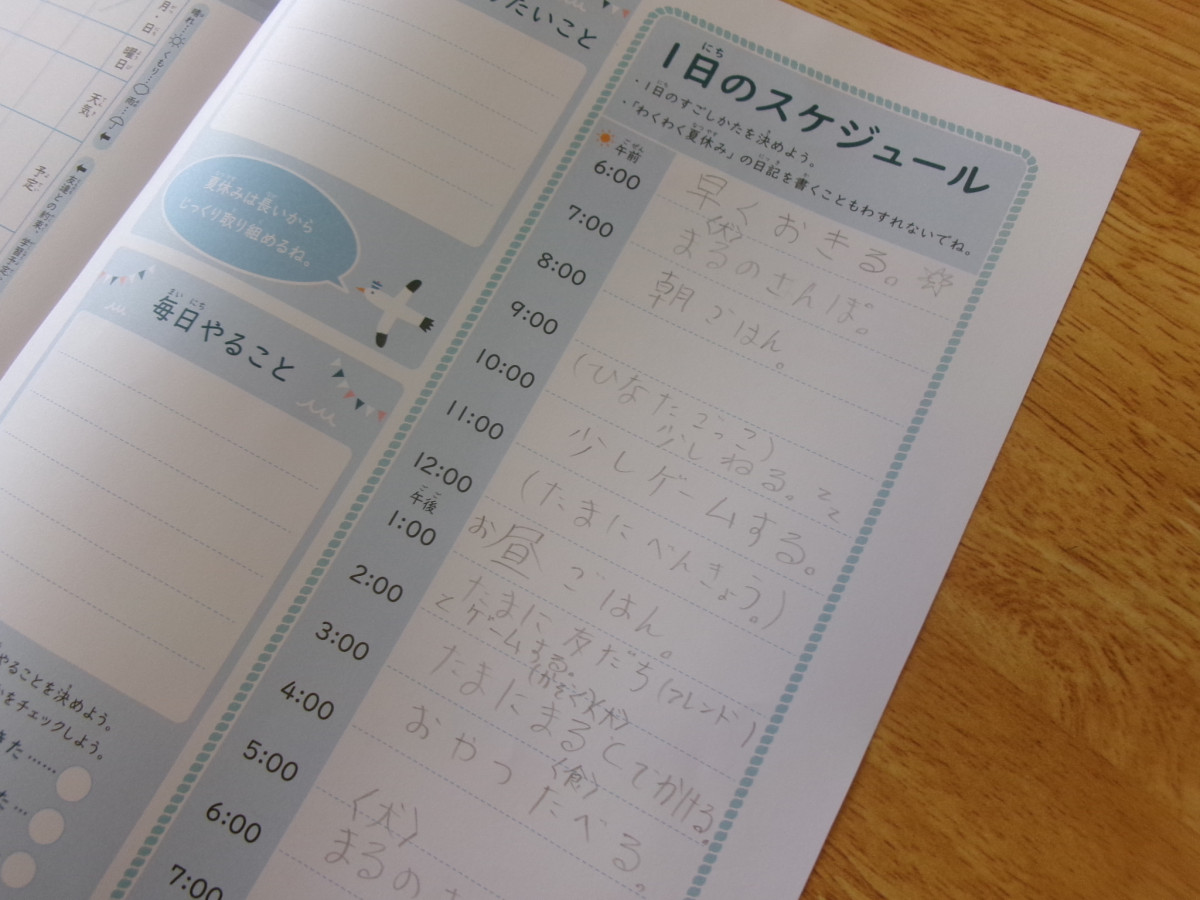 月・日
曜日
天気
予定
晴れ…
くもり…
雨…
友達との約束、学習予定、
たいこと
夏休みは長いから
じっくり取り組めるね。
まい にち
毎日やること
やることを決めよう。
をチェックしよう。
きた……
た…
にち
1日のスケジュール
・1日のすごしかたを決めよう。
・「わくわく夏休み」の日記を書くこともわすれないでね。
ごぜん
午前
6:00 早くおきる。
〈犬〉
7:00 まるのさんぽ。
8:00 朝ごはん。
9:00
10:00 (ひなたごっこ)
少しねる。zz
11:00 少しゲームする。
12:00 (たまにべんきょう。)
ごご
午後
1:00 お昼ごはん。
2:00 たまに友だち(フレンド)
とゲームする。
(かぞく)〈犬〉
3:00 たまにまるとでかける。
〈食〉
4:00 おやつたべる。
5:00
〈犬〉
6:00 まるのさ
7:00